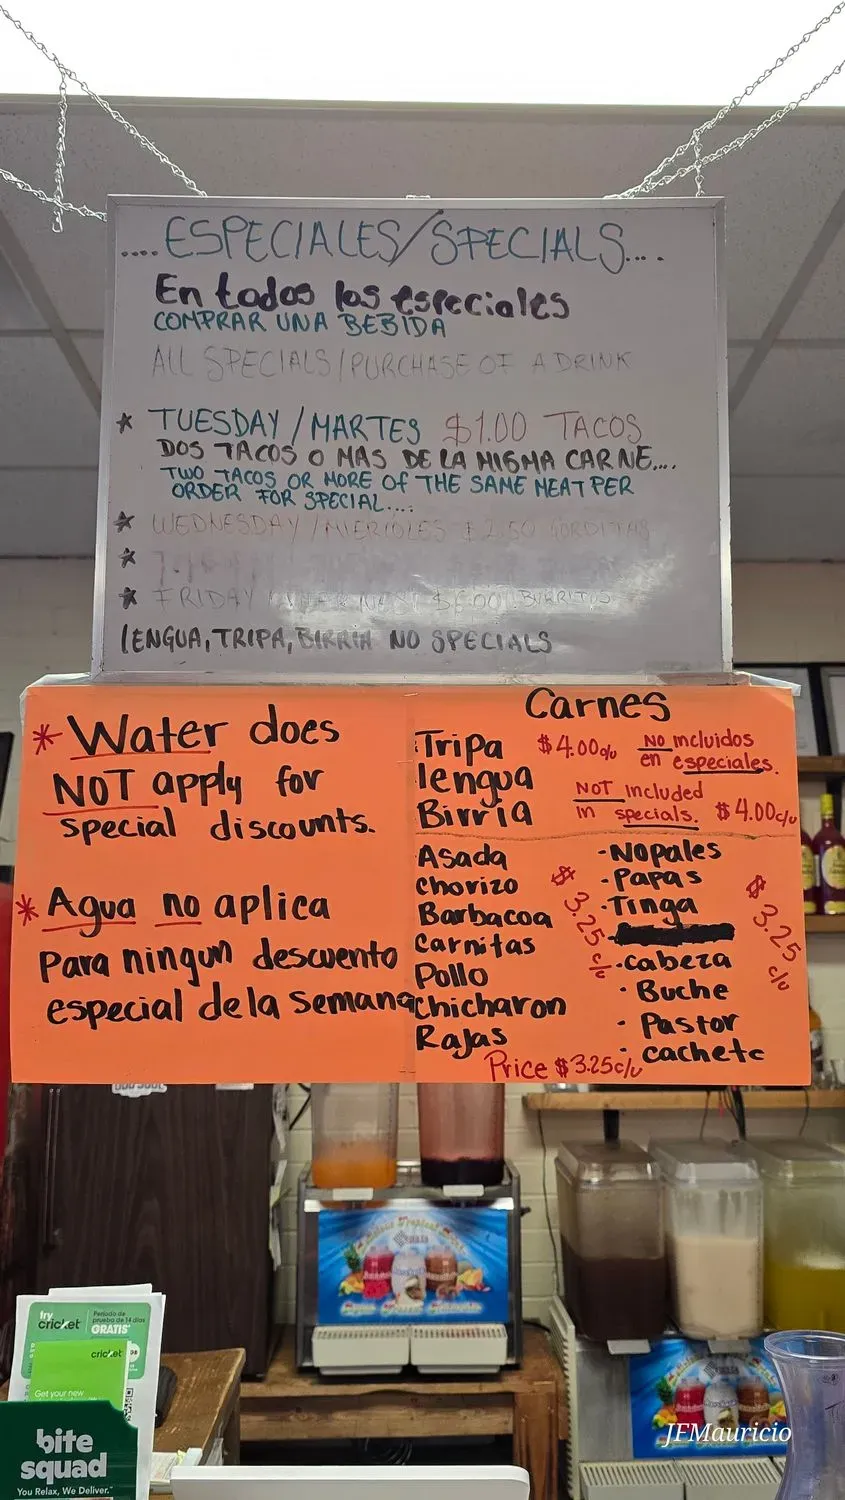 ....ESPECIALES/SPECIALS....
En todos los especiales
COMPRAR UNA BEBIDA
ALL SPECIALS/PURCHASE OF A DRINK
* TUESDAY/MARTES $1.00 TACOS
DOS TACOS O MAS DE LA MISMA CARNE....
TWO TACOS OR MORE OF THE SAME MEAT PER
ORDER FOR SPECIAL....
* WEDNESDAY/MIERCOLES $2.50 GORDITAS
*
* FRIDAY BURRITOS
LENGUA, TRIPA, BIRRIA NO SPECIALS
* Water does
NOT apply for
special discounts.
* Agua no aplica
Para ningun descuento
especial de la semana
Carnes
Tripa
lengua
Birria
$4.00c/u
NO incluidos
en especiales.
NOT included
in specials. $4.00c/u
Asada
chorizo
Barbacoa
carnitas
Pollo
chicharon
Rajas
$3.25 c/u
·Nopales
·Papas
·Tinga
·cabeza
·Buche
·Pastor
·cachete
$3.25 c/u
Price $3.25c/u
try
cricket
Periodo de
prueba de 14 días
GRATIS
cricket
Get your new
bite
squad
You Relax, We Deliver.
JFMauricio